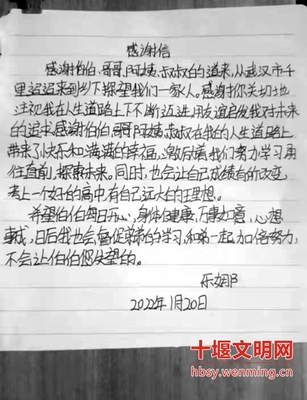 感谢信
感谢伯伯、哥哥、阿姨、叔叔的道来,从武汉市千
里迢迢来到乡下探望我们一家人。感谢你关切地
注视我在人生道路上下不断迈进,用友谊启发我对未来
的追求。感谢伯伯、哥哥、阿姨、叔叔在我的人生道路上
带来了快乐和满满的幸福,激励着我们努力学习勇
往直前,探索未来。同时,也会让自己成绩有的改变,
考上一个好的高中,有自己远大的理想。
希望伯伯每日开心,身体健康,万事如意,心想
事成,日后我也会督促弟弟的学习,和弟一起加倍努力,
不会让伯伯您失望的。
乐
2022年1月20日
十堰文明网
hbsy.wenming.cn